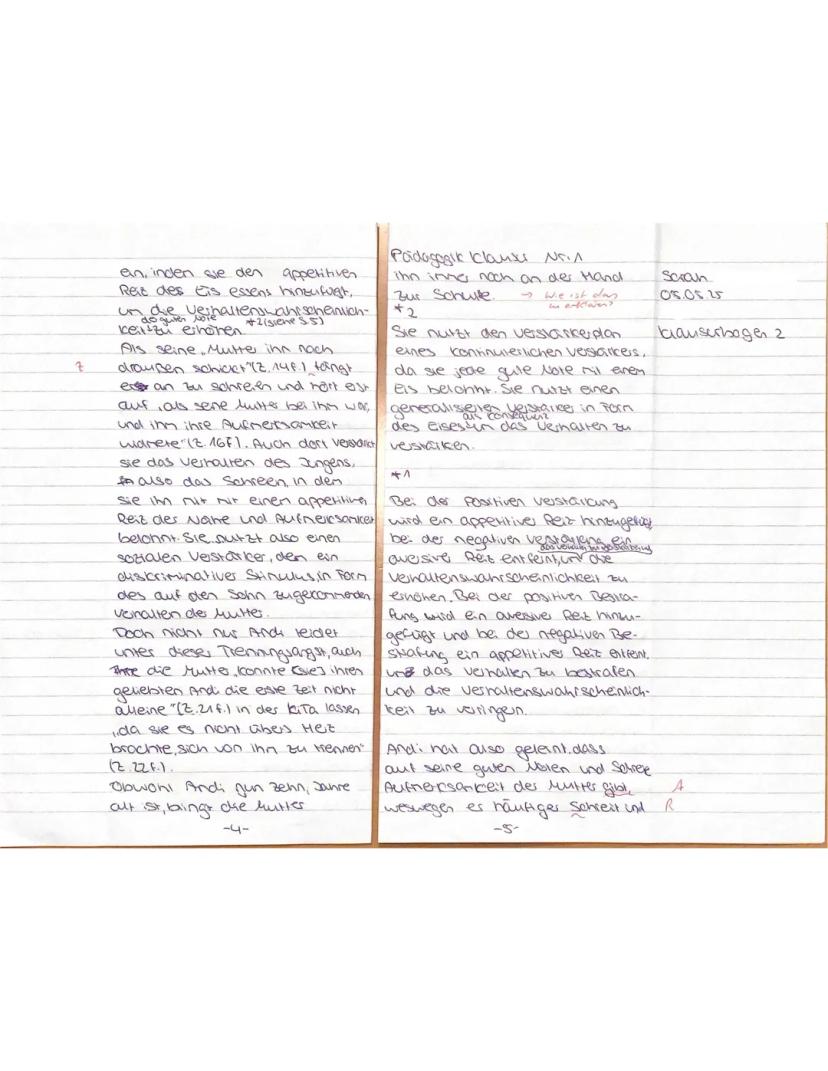 ein, inden sie den appetitiven
Reiz des Eis essens hinzufügt,
um die Verhaltenswahrscheinlich-
do guten Note *2 (siehe S.5)
keit zu erhöhen
Als seine „Mutter ihn nach
Z draußen schickt" (Z. 14f.), fängt
er an zu schreien und hört erst
auf „als seine Mutter bei ihm war,
und ihm ihre Aufmerksamkeit
widmete" (Z. 16f.). Auch dort verstärkt
sie das Verhalten des Jungens,
also das Schreien, in dem
sie ihn mit mit einen appetitiven
Reiz der Nähe und Aufmerksamkeit
belohnt. Sie nutzt also einen
sozialen Verstärker, den ein
diskriminativer Stimulus, in Form
des auf den Sohn zugekommenden
verhalten der Mutter.
Doch nicht nur Andi leidet
unter dieser Trennungsangst, auch
die Mutter „konnte [sie] ihren
geliebten Andi die erste Zeit nicht
alleine" (Z. 21f.) in der KiTa lassen
„da sie es nicht übers Herz
brachte, sich von ihm zu trennen"
(Z. 22f.).
Obwohl Andi nun zehn, Jahre
alt ist, bringt die Mutter
-4-
Pädagogik Klausur Nr. 1
ihn immer noch an der Hand Sarah
zur Schule. → Wie ist das 05.05.25
zu erklären?
*2
Sie nutzt den Verstärkerplan Klausurbogen 2
eines kontinuierlichen Verstärkers,
da sie jede gute Note mit einem
Eis belohnt. Sie nutzt einen
generalisierten Verstärker in Form
als Consequenz
des Eises um das Verhalten zu
verstärken.
*1
Bei der positiven Verstärkung
wird ein appetitiver Reiz hinzugefügt,
bei der negativen Verstärkung ein
aversiver Reiz entfernt, um die
Verhaltenswahrscheinlichkeit zu
erhöhen. Bei der positiven Bestra-
fung wird ein aversiver Reiz hinzu-
gefügt und bei der negativen Be-
strafung ein appetitiver Reiz entfernt.
um das Verhalten zu bestrafen
und die Verhaltenswahrscheinlich-
keit zu verringern.
Andi hat also gelernt, dass
auf seine guten Noten und Schreie
Aufmerksamkeit der Mutter gibt, A
weswegen er häufiger Schreit und R
-5-